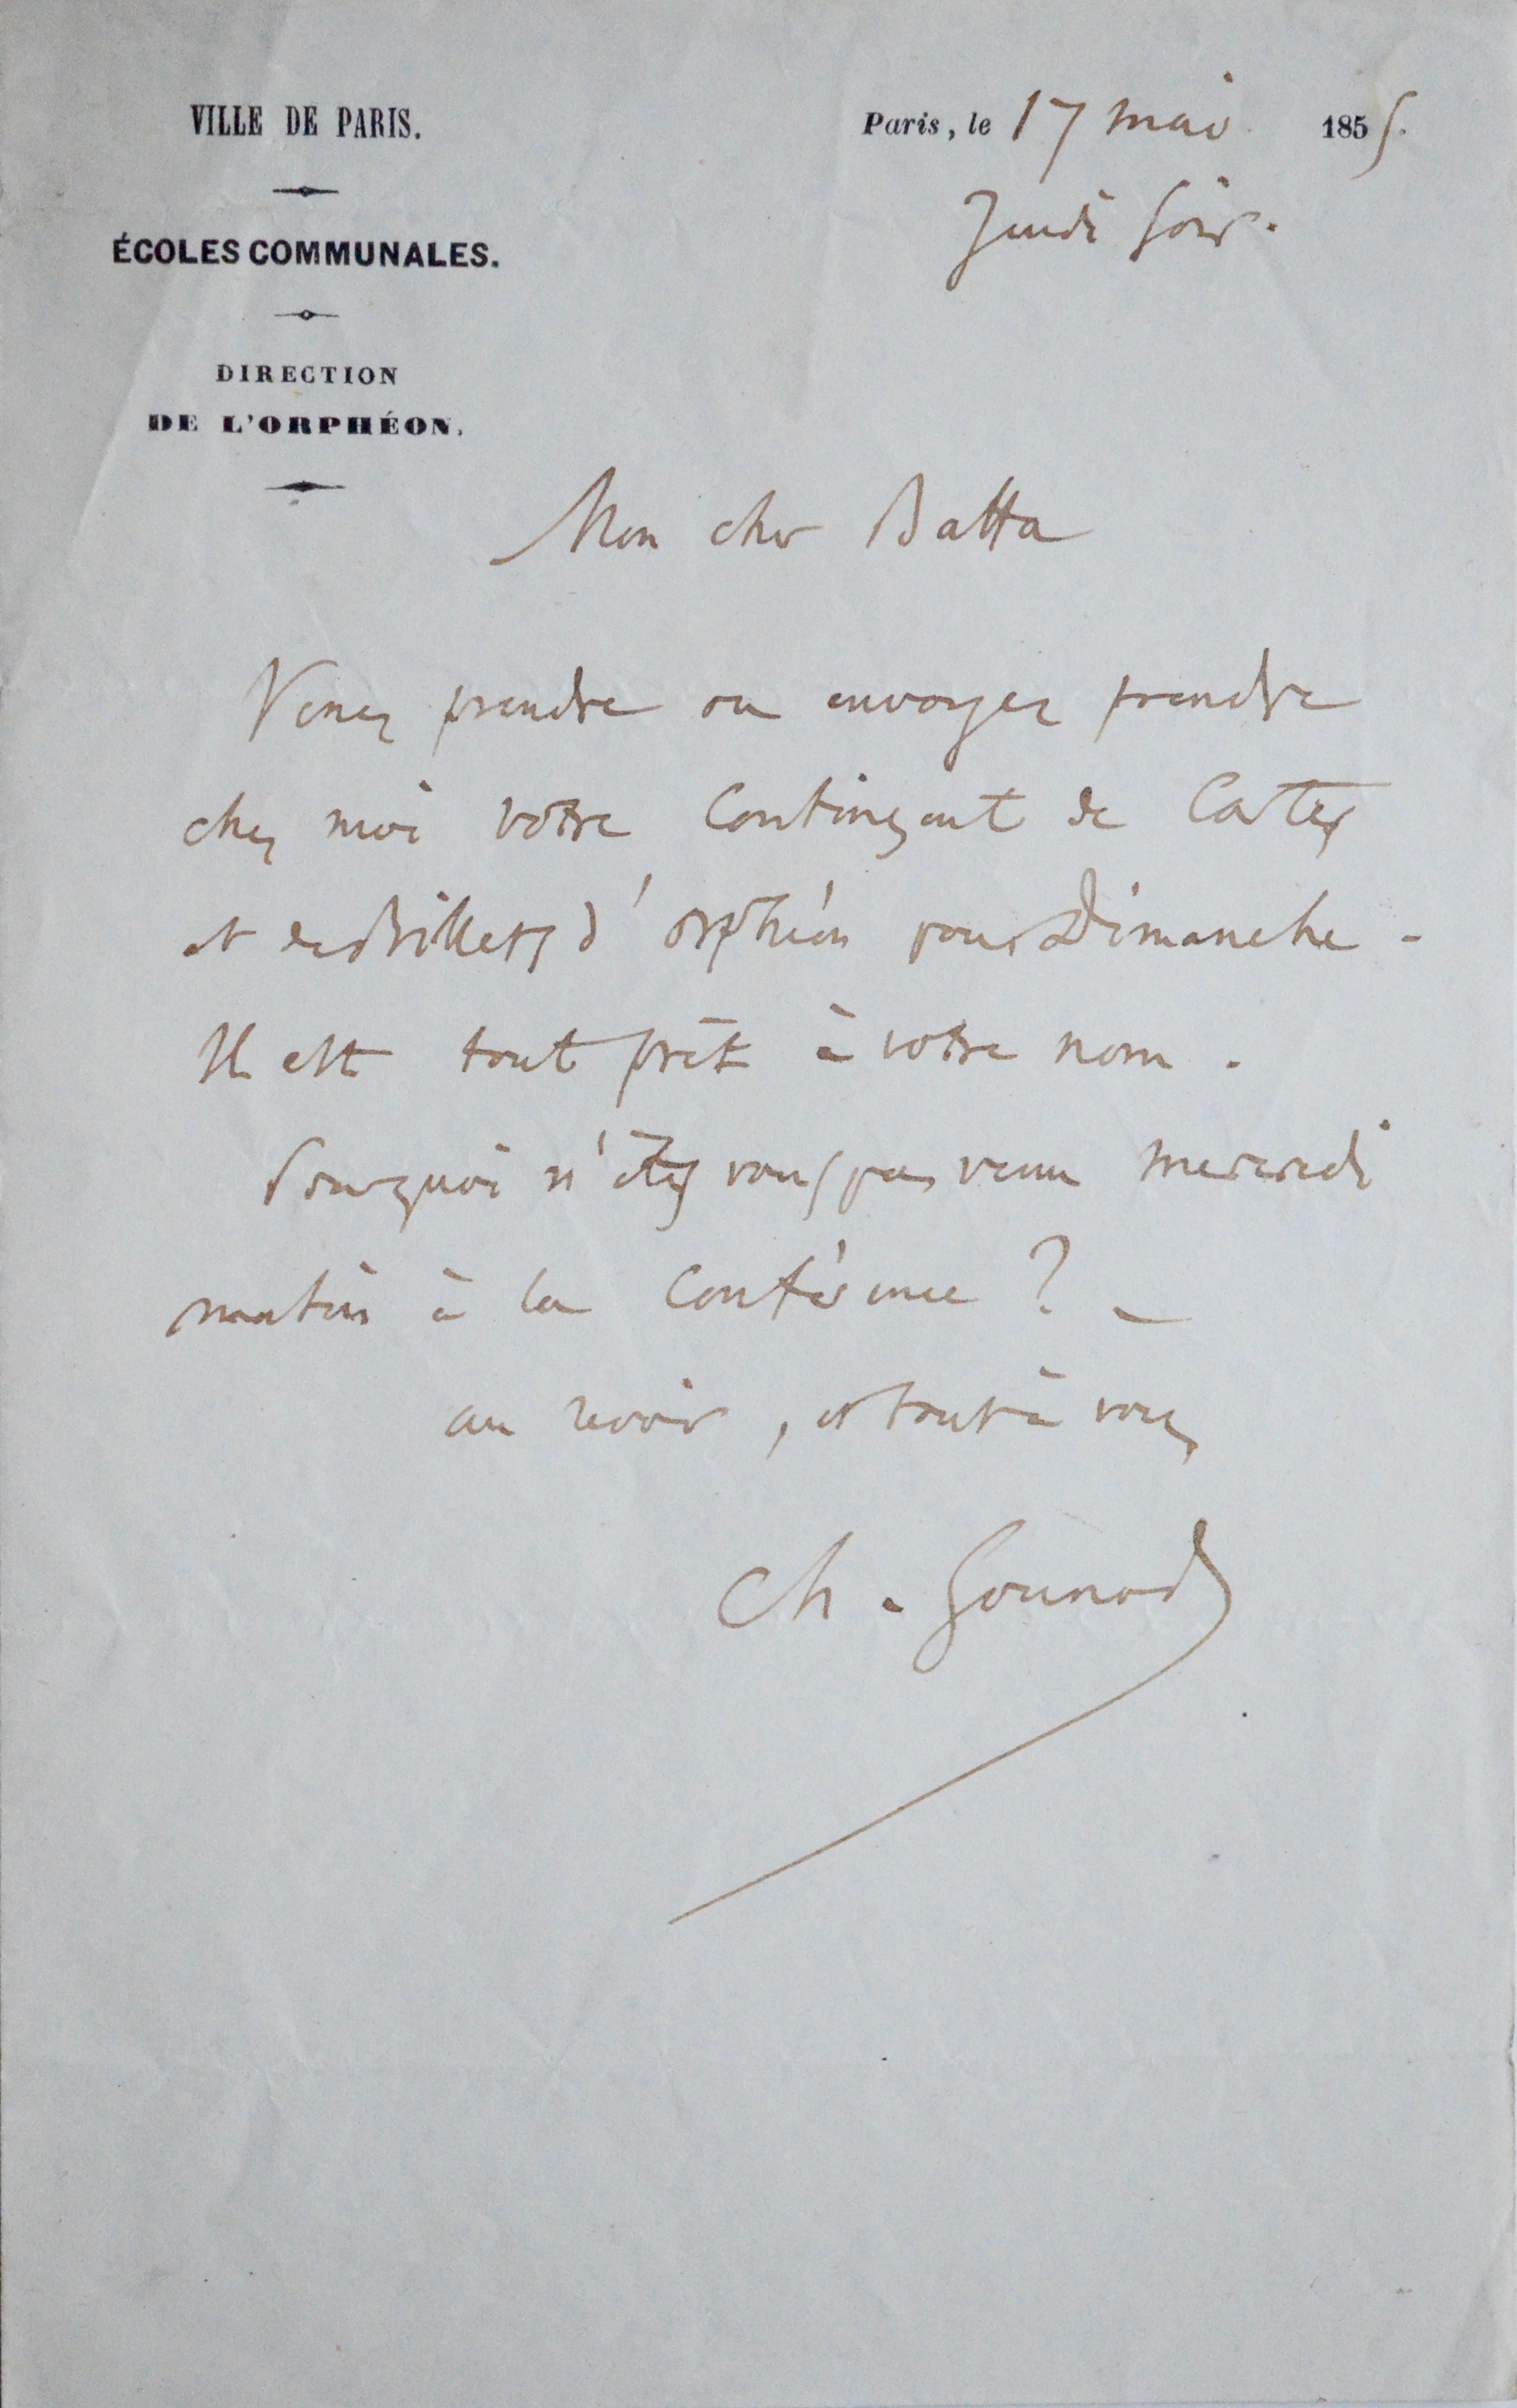 VILLE DE PARIS.
Paris, le 17 mai 1855.
Jeudi soir.
ÉCOLES COMMUNALES.
DIRECTION
DE L'ORPHÉON.
Mon cher Batta
Venez prendre ou envoyez prendre
chez moi votre Contingent de Cartes
et de Billets d'orphéon pour Dimanche -
Il est tout prêt à votre nom.
Pourquoi n'êtes vous pas venu mercredi
matin à la Conférence ? -
au revoir, et tout à vous
Ch. Gounod